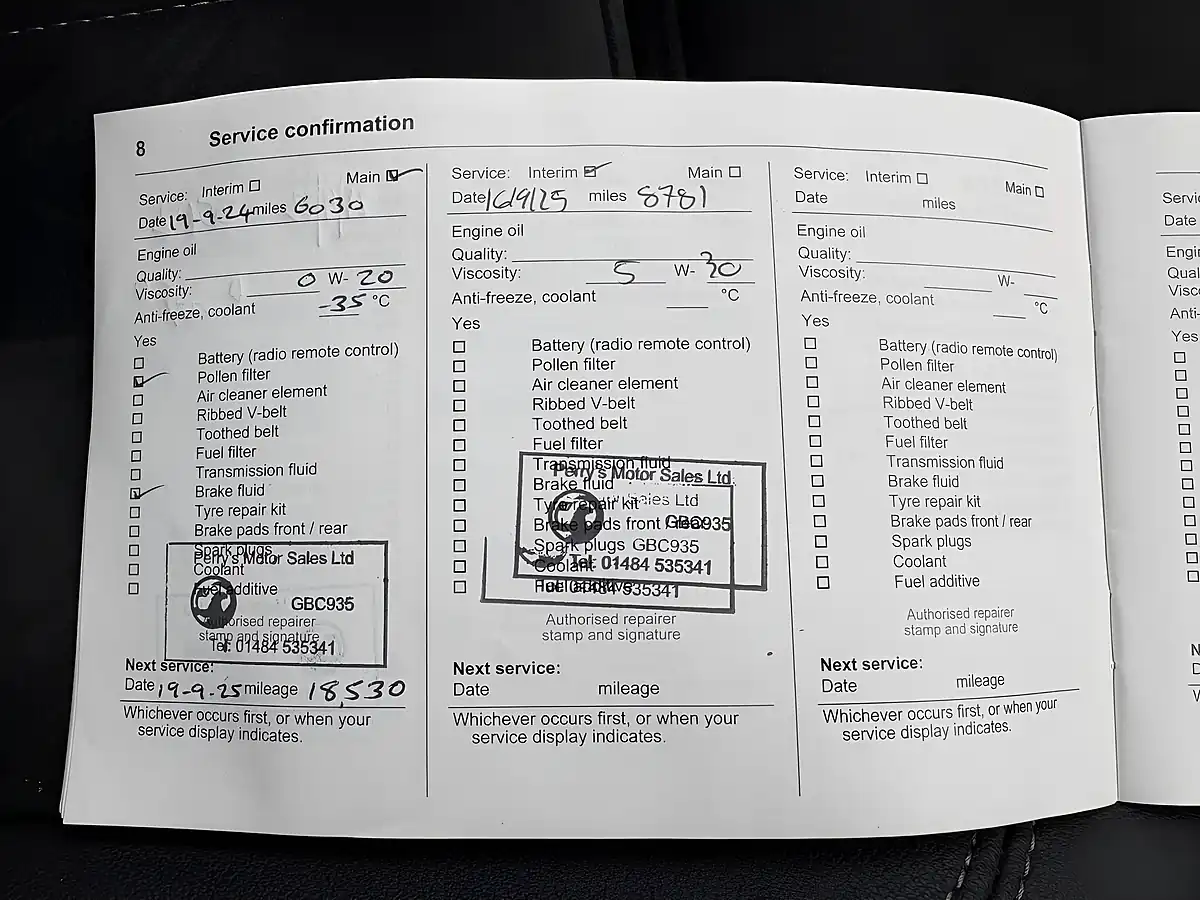 8 Service confirmation
Service: Interim Main
Date 19-9-24 miles 6030
Engine oil
Quality:
Viscosity: 0 W- 20
Anti-freeze, coolant -35 °C
Yes
Battery (radio remote control)
Pollen filter
Air cleaner element
Ribbed V-belt
Toothed belt
Fuel filter
Transmission fluid
Brake fluid
Tyre repair kit
Brake pads front / rear
Spark plugs
Perry's Motor Sales Ltd
Coolant
Fuel additive
GBC935
Authorised repairer
stamp and signature
Tel: 01484 535341
Next service:
Date 19-9-25 mileage 18,530
Whichever occurs first, or when your
service display indicates.
Service: Interim Main
Date 16/9/25 miles 8781
Engine oil
Quality:
Viscosity: 5 W- 30
Anti-freeze, coolant °C
Yes
Battery (radio remote control)
Pollen filter
Air cleaner element
Ribbed V-belt
Toothed belt
Fuel filter
Transmission fluid
Perry's Motor Sales Ltd
Brake fluid
Tyre repair kit Sales Ltd
Brake pads front / rear GBC935
Spark plugs GBC935
Coolant Tel: 01484 535341
Fuel additive Tel: 01484 535341
Authorised repairer
stamp and signature
Next service:
Date mileage
Whichever occurs first, or when your
service display indicates.
Service: Interim Main
Date miles
Engine oil
Quality:
Viscosity: W-
Anti-freeze, coolant °C
Yes
Battery (radio remote control)
Pollen filter
Air cleaner element
Ribbed V-belt
Toothed belt
Fuel filter
Transmission fluid
Brake fluid
Tyre repair kit
Brake pads front / rear
Spark plugs
Coolant
Fuel additive
Authorised repairer
stamp and signature
Next service:
Date mileage
Whichever occurs first, or when your
service display indicates.
Date
Yes